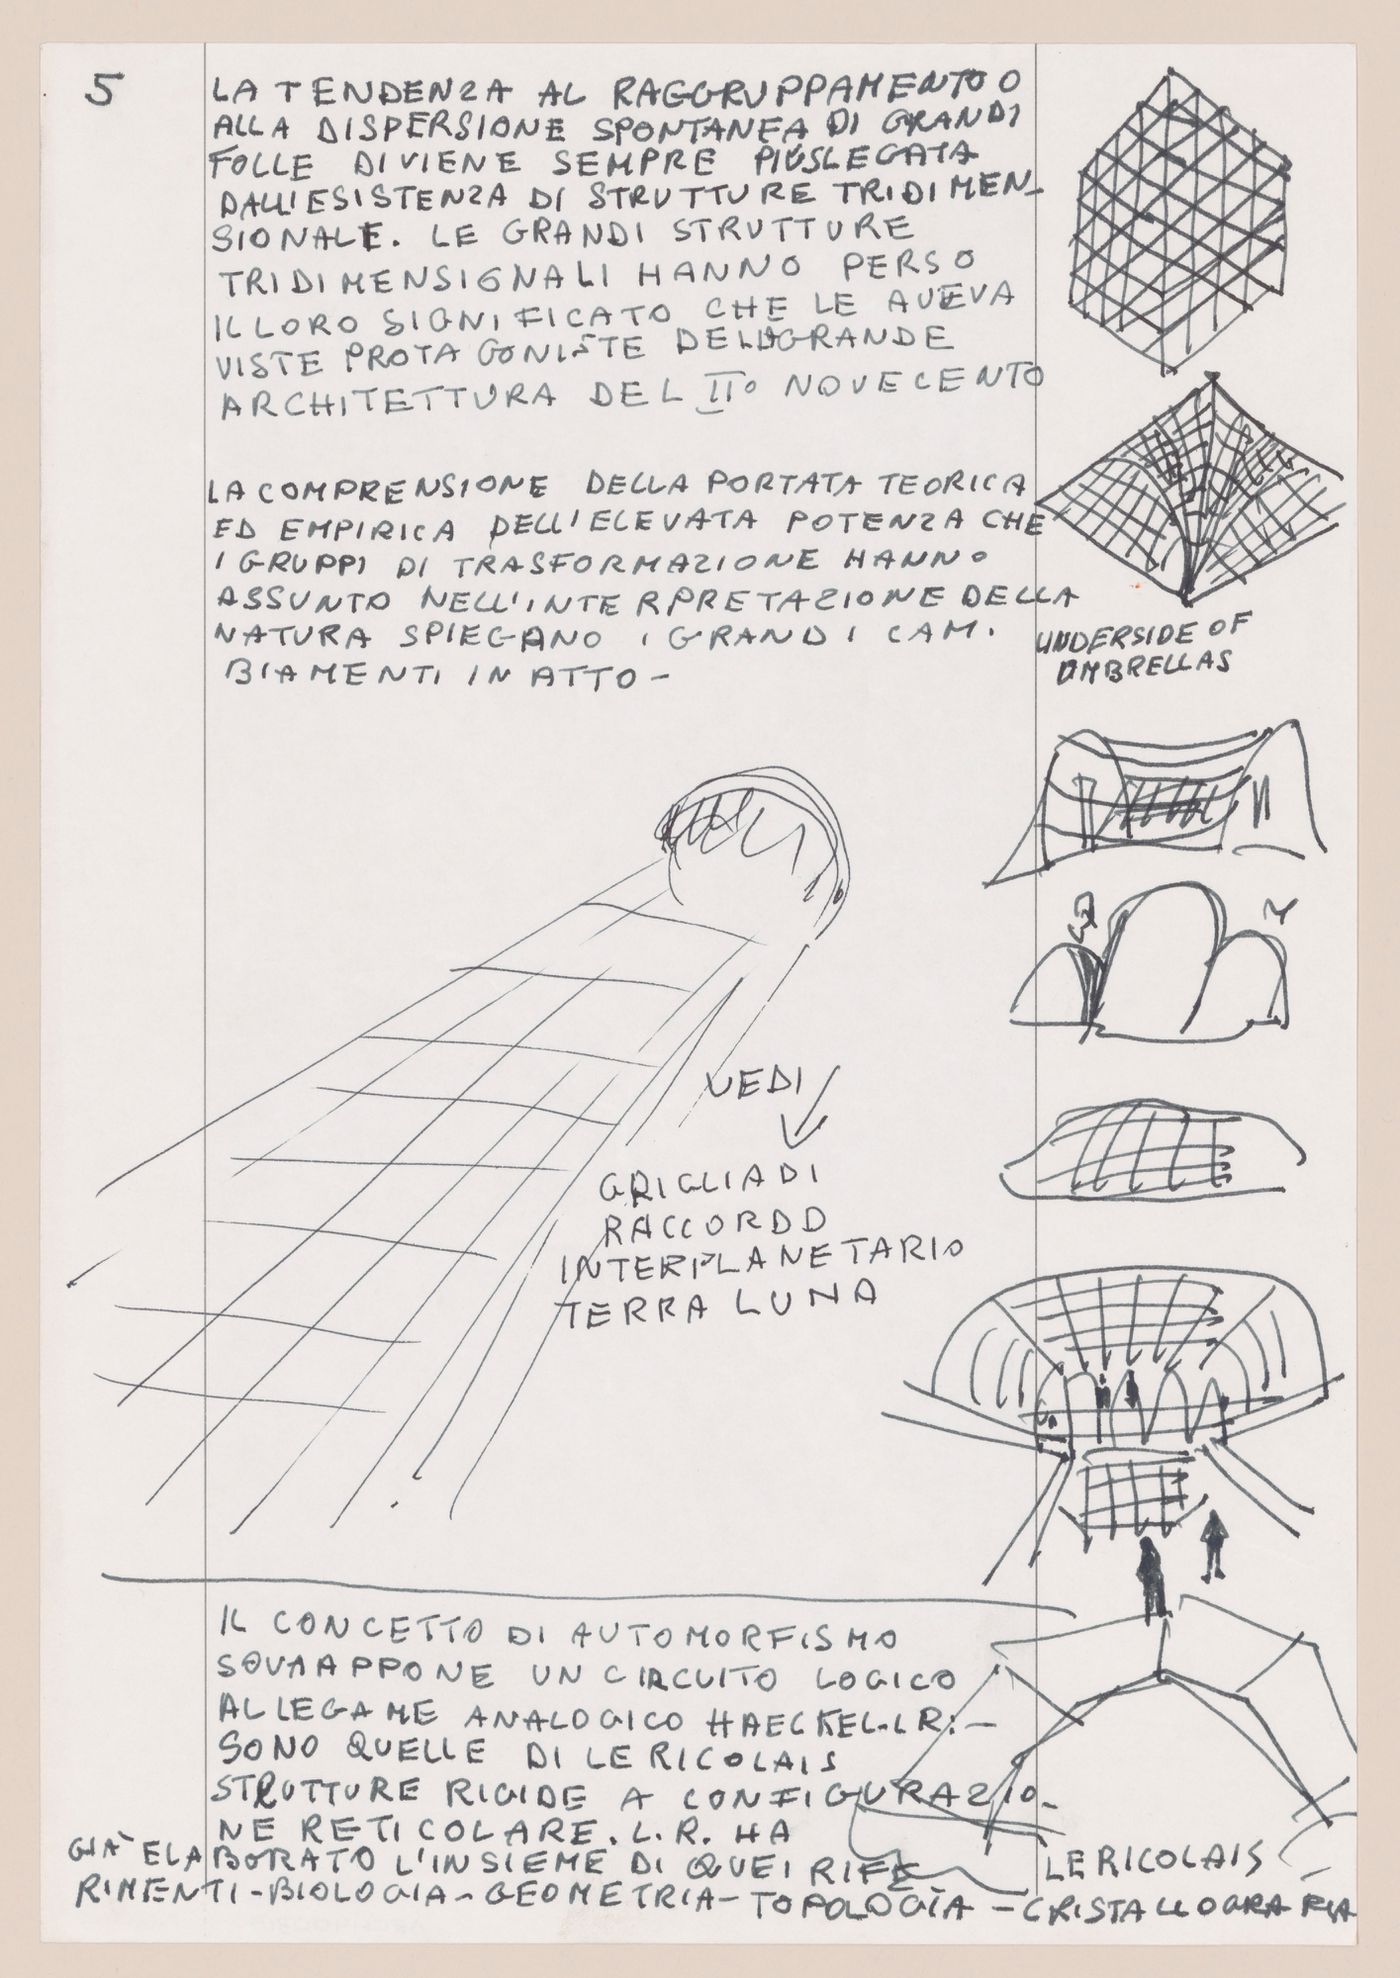 5
LA TENDENZA AL RAGGRUPPAMENTO O
ALLA DISPERSIONE SPONTANEA DI GRANDI
FOLLE DIVIENE SEMPRE PIÙ SLEGATA
DALL'ESISTENZA DI STRUTTURE TRIDIMEN-
SIONALE. LE GRANDI STRUTTURE
TRIDIMENSIONALI HANNO PERSO
IL LORO SIGNIFICATO CHE LE AVEVA
VISTE PROTAGONISTE DELLA GRANDE
ARCHITETTURA DEL II° NOVECENTO
LA COMPRENSIONE DELLA PORTATA TEORICA
ED EMPIRICA DELL'ELEVATA POTENZA CHE
I GRUPPI DI TRASFORMAZIONE HANNO
ASSUNTO NELL'INTERPRETAZIONE DELLA
NATURA SPIEGANO I GRANDI CAM.
BIAMENTI IN ATTO -
UNDERSIDE OF
UMBRELLAS
VEDI
GRIGLIA DI
RACCORDO
INTERPLANETARIO
TERRA LUNA
IL CONCETTO DI AUTOMORFISMO
SOVRAPPONE UN CIRCUITO LOGICO
AL LEGAME ANALOGICO HAECKEL-LR: -
SONO QUELLE DI LE RICOLAIS
STRUTTURE RIGIDE A CONFIGURAZIO-
NE RETICOLARE. L.R. HA
GIÀ ELABORATO L'INSIEME DI QUEI RIFE
RIMENTI - BIOLOGIA - GEOMETRIA - TOPOLOGIA - CRISTALLOGRAFIA
LE RICOLAIS